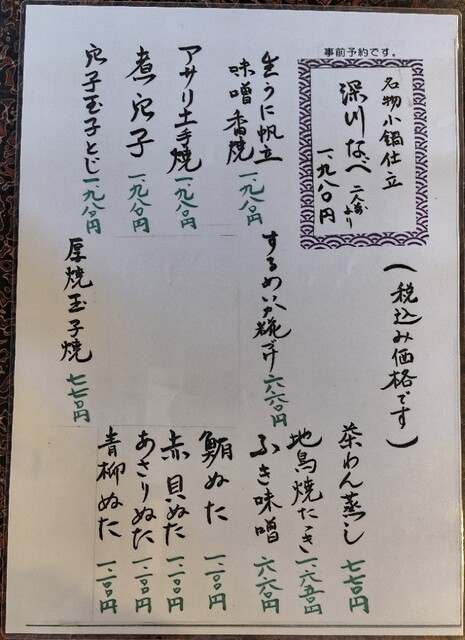 事前予約です。
名物小鍋仕立
深川なべ 二人前より
一、九八〇円
(税込み価格です)
生うに帆立
味噌香焼
一、九八〇円
アサリ土手焼
一、九八〇円
煮穴子
一、九八〇円
穴子玉子とじ
一、九八〇円
するめいか糀づけ 六六〇円
厚焼玉子焼
七七〇円
茶わん蒸し
七七〇円
地鳥焼たつき
一、六五〇円
ふき味噌
六六〇円
鮪ぬた
一、一〇〇円
赤貝ぬた
一、一〇〇円
あさりぬた
一、一〇〇円
青柳ぬた
一、一〇〇円